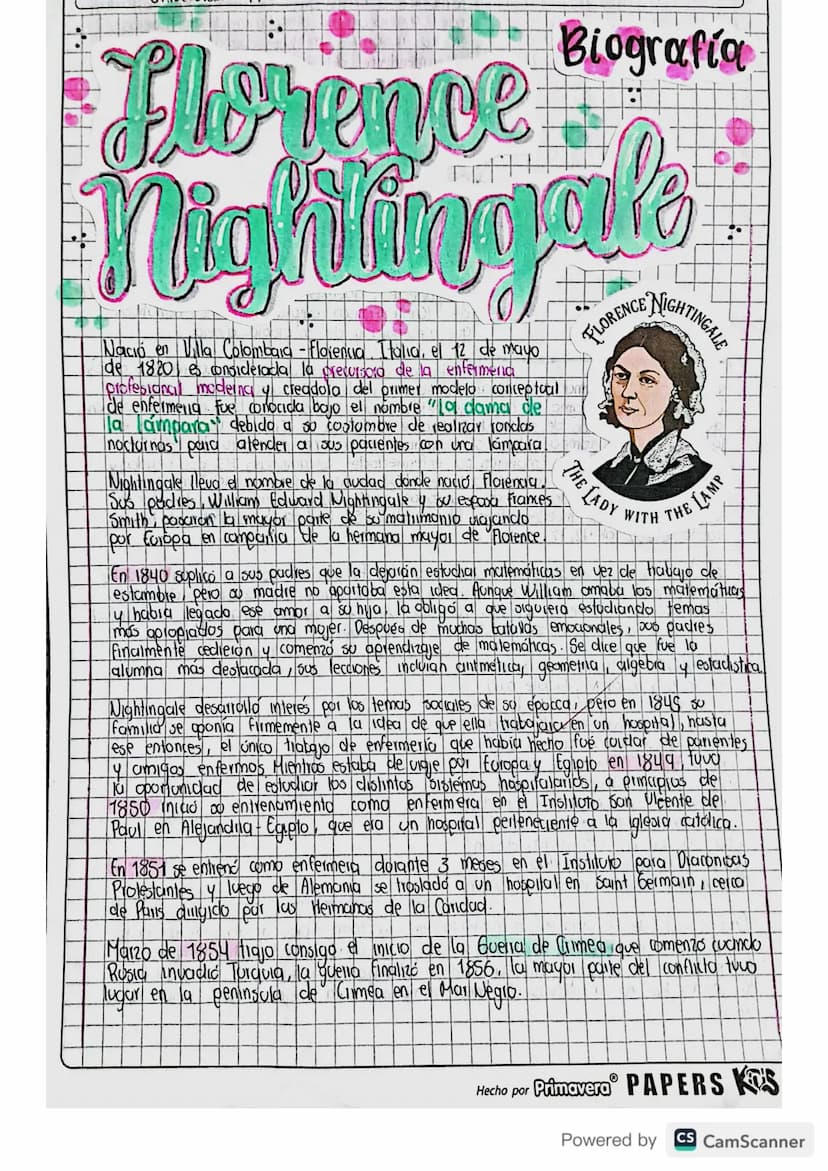 Biografía
Florence
Nightingale
FLORENCE NIGHTINGALE
THE LADY WITH THE LAMP
Nació en Villa Colombaia - Florencia Italia, el 12 de mayo
de 1820, es considerada la precursora de la enfermería
profesional moderna y creadora del primer modelo conceptual
de enfermería. Fue conocida bajo el nombre "La dama de
la lámpara" debido a su costumbre de realizar rondas
nocturnas para atender a sus pacientes con una lámpara.
Nightingale lleva el nombre de la ciudad donde nació, Florencia.
Sus padres, William Edward Nightingale y su esposa Frances
Smith, pasaron la mayor parte de su matrimonio viajando
por Europa en compañía de la hermana mayor de Florence.
En 1840 suplicó a sus padres que la dejarán estudiar matemáticas en vez de trabajo de
estambre, pero su madre no aportaba esta idea. Aunque William amaba las matemáticas
y había legado ese amor a su hija, la obligó a que siguiera estudiando temas
más apropiados para una mujer. Después de muchas batallas emocionales, sus padres
finalmente cedieron y comenzó su aprendizaje de matemáticas. Se dice que fue la
alumna más destacada, sus lecciones incluían aritmética, geometría, algebra y estadística.
Nightingale desarrolló interés por los temas sociales de su época, pero en 1845 su
familia se oponía firmemente a la idea de que ella trabajara en un hospital, hasta
ese entonces, el único trabajo de enfermería que había hecho fué cuidar de parientes
y amigos enfermos. Mientras estaba de viaje por Europa y Egipto en 1849, tuvo
la oportunidad de estudiar los distintos sistemas hospitalarios, a principios de
1850 inició su entrenamiento como enfermera en el Instituto San Vicente de
Paul en Alejandría - Egipto, que era un hospital perteneciente a la iglesia católica.
En 1851 se entrenó como enfermera durante 3 meses en el Instituto para Diaconisas
Protestantes y luego de Alemania se trasladó a un hospital en Saint Germain, cerca
de Paris dirigido por las Hermanas de la Caridad.
Marzo de 1854 trajo consigo el inicio de la Guerra de Crimea, que comenzó cuando
Rusia invadió Turquía, la guerra finalizó en 1856, la mayor parte del conflicto tuvo
lugar en la península de Crimea en el Mar Negro.
Hecho por Primavera® PAPERS KIDS
Powered by CS CamScanner